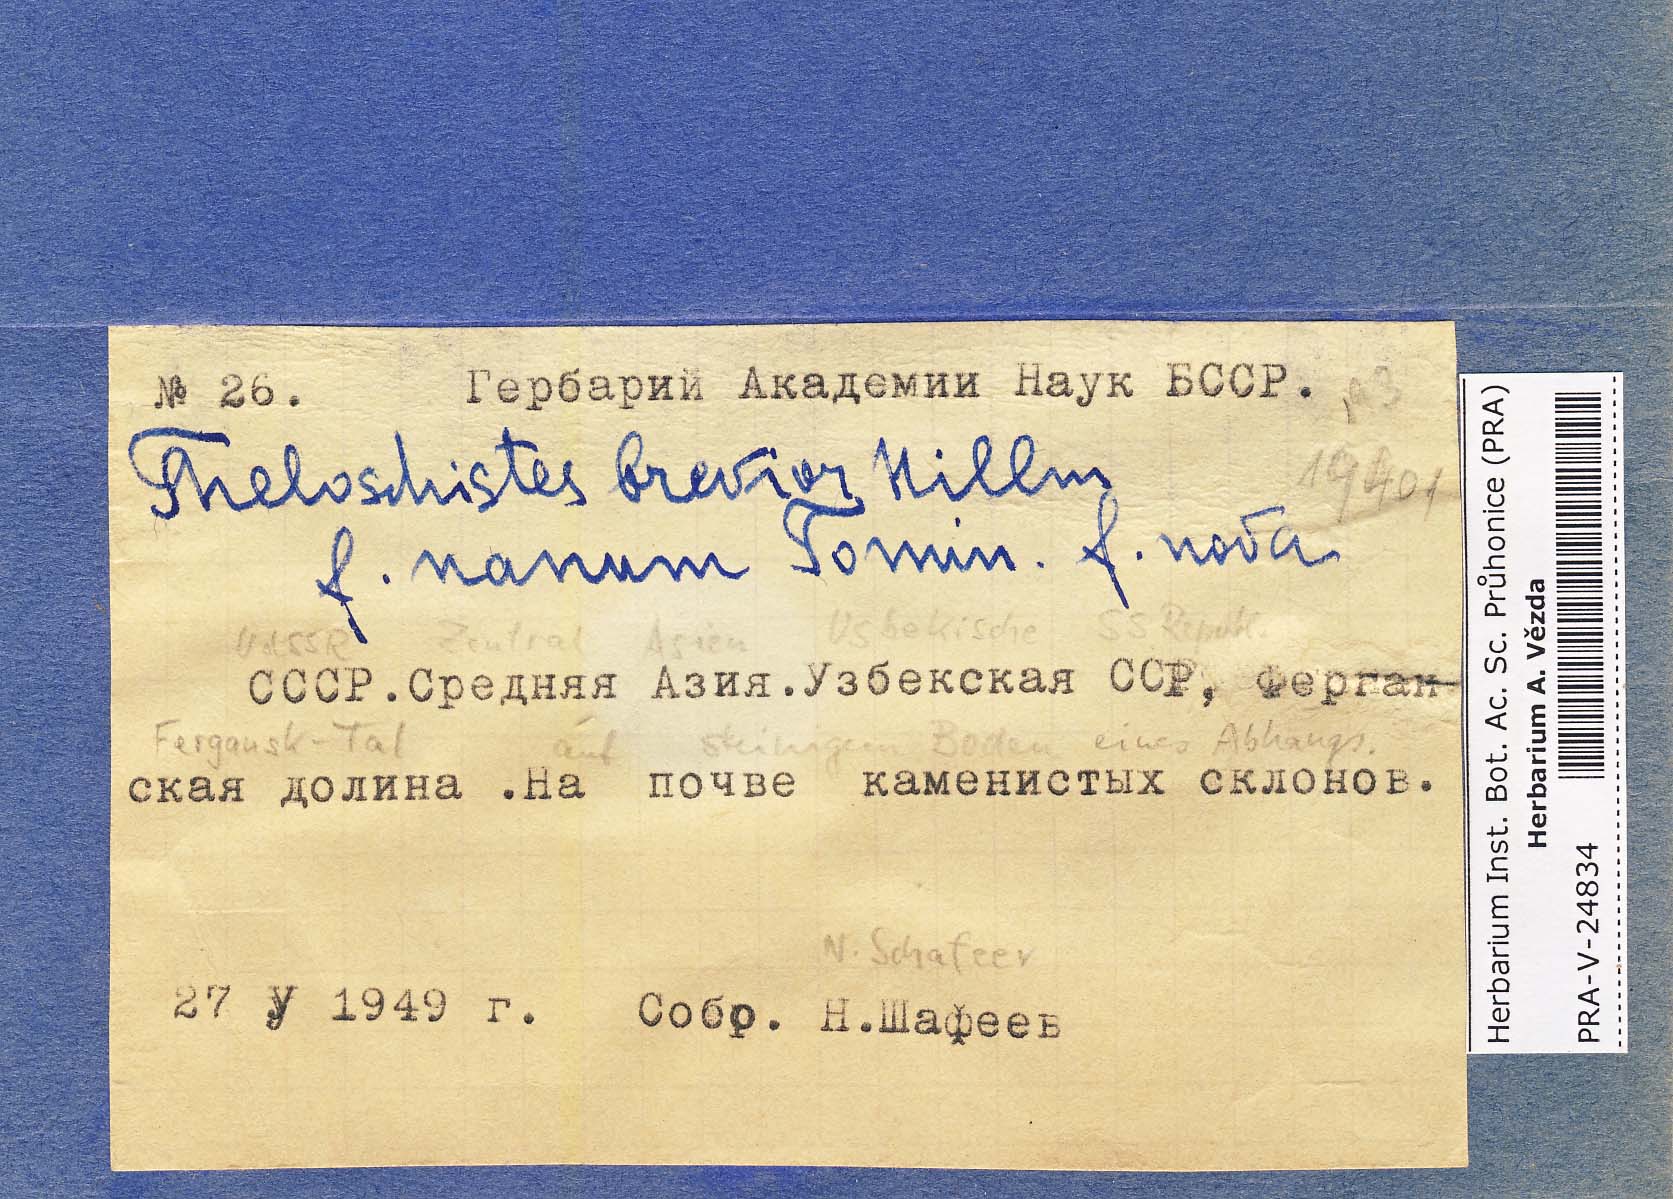 № 26. Гербарий Академии Наук БССР.
Theloschistes brevior Hillm
19401
f. nanum Tomin. f. nova
UdSSR Zentral Asien Usbekische SS Republ.
СССР.Средняя Азия.Узбекская ССР, Ферган-
Fergansk-Tal auf steinigem Boden eines Abhangs.
ская долина .На почве каменистых склонов.
N. Schafeev
27 У 1949 г. Собр. Н.Шафеев
Herbarium Inst. Bot. Ac. Sc. Průhonice (PRA)
Herbarium A. Vězda
PRA-V-24834